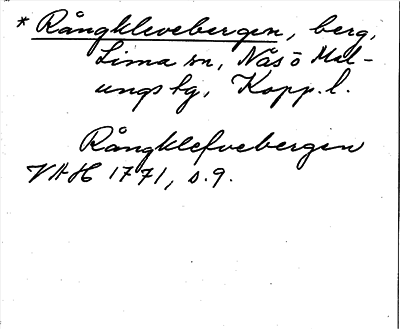 * Rångklevebergen, berg,
Lima sn, Nås o Mal-
ungs tg, Kopp. l.
Rångklefvebergen
VAH 1771, s. 9.